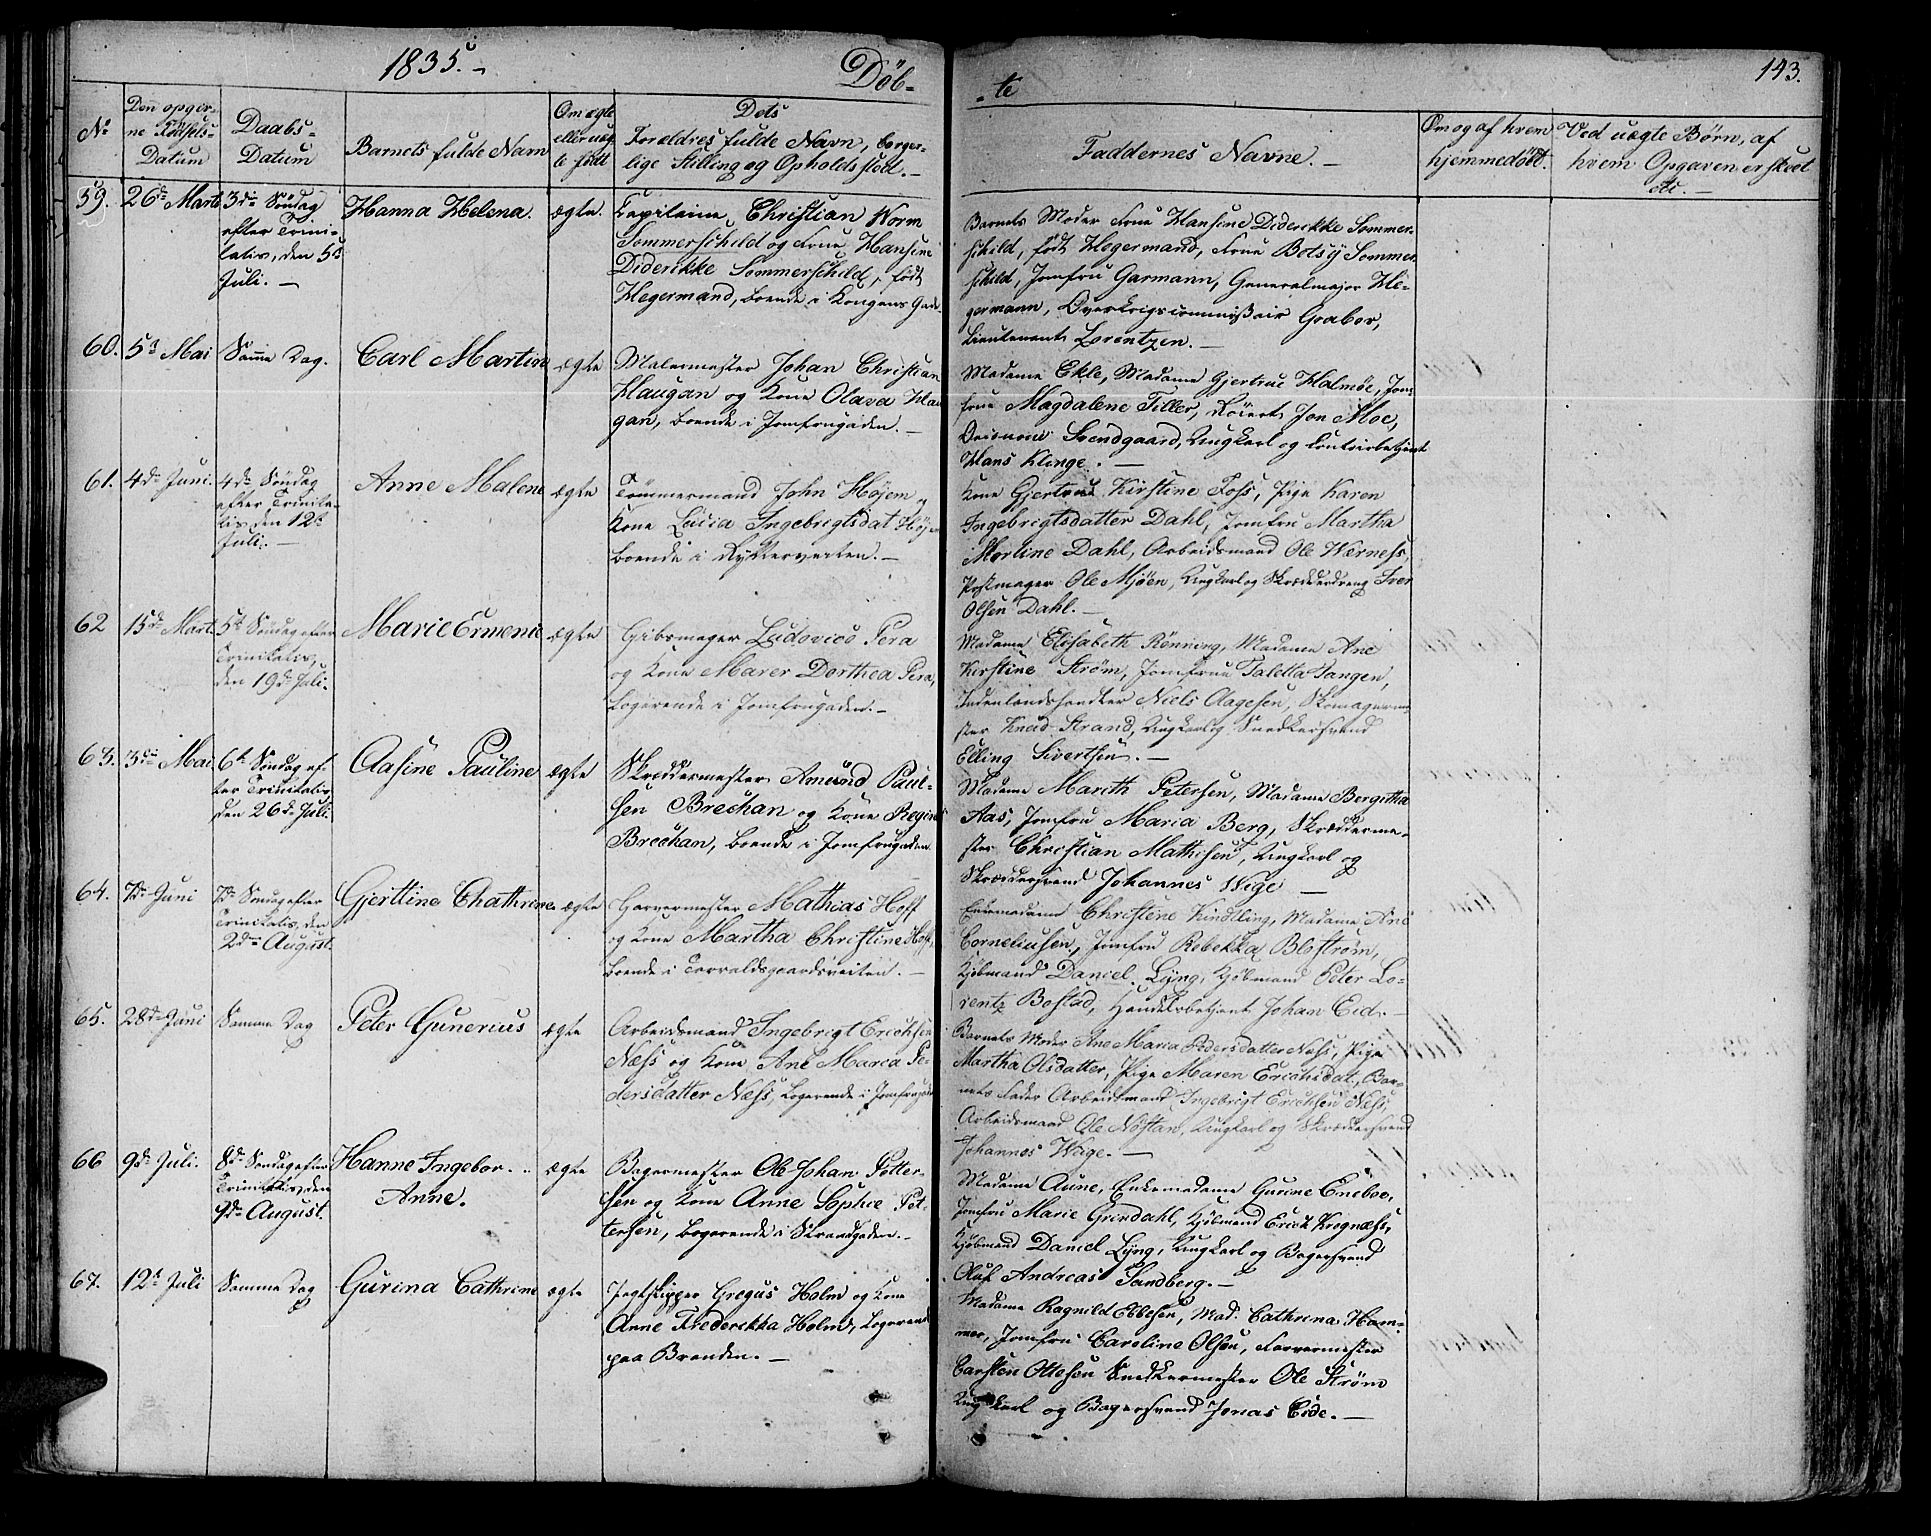 1835.-
Döb-
-te
143.
No
Den opgiv-
ne Fødsels-
Datum
Daabs-
Datum
Barnets fulde Navn
Om ægte
eller uæg-
te født
Dets
Forældres fulde Navn, borger-
lige Stilling og Opholdssted.-
Faddernes Navne.-
Om og af hvem
hjemmedøbt.
Ved uægte Børn, af
hvem Opgaven er skeet
etc.-
59.
26de Marts
3die Søndag
efter Trini-
tatis, den 5te
Juli.-
Hanna Helena.
ægte.
Capitaine Christian Worm
Sommerschild og Frue Hansine
Diderikke Sommerschild, født
Hegermand, boende i Kongens Gade.
Barnets Moder Frue Hansine Diderikke Sommer-
schild, født Hegermand, Frue Betsy Sommer-
schild, Jomfru Garmann, Generalmajor He-
germann, Overkrigscommissair Grabor,
Lieutenant Lorentzen.-
60.
5te Mai
Samme Dag.
Carl Martin
ægte
Malermester Johan Christian
Haugan og Kone Olava Hau-
gan, boende i Jomfrugaden.-
Madame Ekle, Madame Gjertrue Halmöe, Jom-
frue Magdalene Tiller, Jon Moe,
Svendgaard, Ungkarl og Contoirbetjent
Hans Klinge.-
61.
4de Juni.
4de Søndag
efter Trinita-
tis, den 12te
Juli.-
Anne Malene
ægte
Tømmermand John Höjem og
Kone Lucia Ingebrigtsdat Höjem
boende i Rytterveiten.-
Kone Gjertrud Kirstine Foss, Pige Karen
Ingebrigtsdatter Dahl, Jomfru Martha
Martine Dahl, Arbeidsmand Ole Werness,
Ole Mjöen, Ungkarl og Skrædderdreng Iver
Olsen Dahl.-
62
15de Marts
5te Søndag efter
Trinitatis,
den 19de Juli.
Marie Ermenia
ægte
Gibsmager Ludovico Pera
og Kone Maren Dorthea Pera,
logerende i Jomfrugaden.-
Madame Elisabeth Rønning, Madame Ane
Kirstine Strøm, Jomfrue Taletta Tangen,
Indenlandshandler Niels Aagesen, Skomagerme-
ster Kneid Strand, Ungkarl og Snedkersvend
Elling Sivertsen.-
63.
3die Mai
6te Søndag ef-
ter Trinitatis,
den 26de Juli.
Aasine Pauline
ægte
Skræddermester Amund Paul-
sen Brechan og Kone Regine
Brechan, boende i Jomfrugaden.
Madame Marith Petersen, Madame Bergitha
Aas, Jomfru Maria Berg, Skrædderme-
ster Christian Mathisen, Ungkarl og
Skræddersvend Johannes Wige -
64.
7de Juni
7de Søndag efter
Trinitatis, den
2den August.
Gjerttine Chathrine
ægte
Garvermester Mathias Hoff
og Kone Martha Christine Hoff,
boende i Torvaldsgaardsveiten.-
Enkemadame Christine Kindtling, Madame Ane
Corneliusen, Jomfru Rebekka Blostrøm,
Kjøbmand Daniel Lÿng, Kjøbmand Peter Lo-
rentz Bostad, Handelsbetjent Johan Eid.-
65.
28de Juni
Samme Dag
Peter Gunerius
ægte
Arbeidsmand Ingebrigt Erichsen
Næss og Kone Ane Maria Pe-
dersdatter Næss, logerende i Jomfrugaden
Barnets Moder Ane Maria Pedersdatter Næss, Pige
Martha Olsdatter, Pige Maren Erichsdat., Bar-
nets Fader Arbeidsmand Ingebrigt Erichsen Næss,
Arbeidsmand Ole Nøstan, Ungkarl og Skræddersvend
Johannes Wige.-
66
9de Juli.
8de Søndag efter
Trinitatis, den
9de August.
Hanne Ingebor..
Anne.
ægte
Bagermester Ole Johan Petter-
sen og Kone Anne Sophie Pet-
tersen, logerende i Strandgaden.-
Madame Aune, Enkemadame Gurine Eneboe,
Jomfru Marie Grindahl, Kjøbmand Erich Krognæss,
Kjøbmand Daniel Lÿng, Ungkarl og Bagersvend
Oluf Andreas Sandberg.-
67.
12te Juli
Samme Dag
Gurina Cathrine
ægte
Jagtskipper Gregus Holm og Kone
Anne Frederikka Holm, logerende
paa Branden.-
Madame Ragnild Ebbesen, Mad: Cathrina Ham-
mer, Jomfru Caroline Olsen, Farvermester
Carsten Ottesen Snedkermester Ole Strøm
Ungkarl og Bagersvend Jonas Eide.-